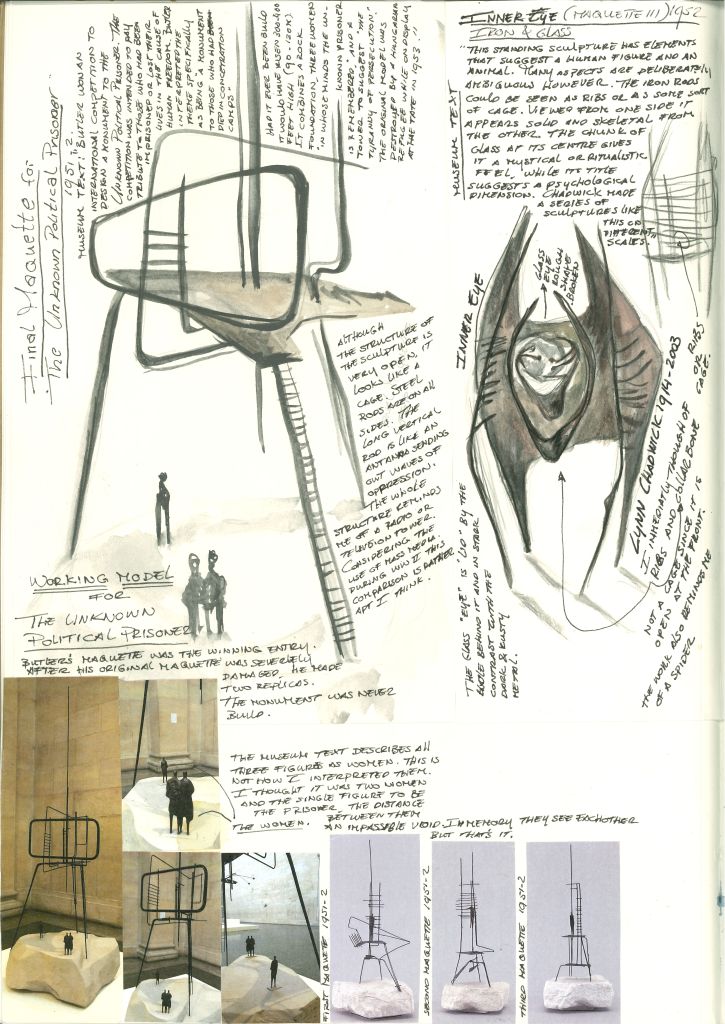 Final Maquette for:
The Unknown Political Prisoner
1951-2
MUSEUM TEXT: BUTLER WON AN
INTERNATIONAL COMPETITION TO
DESIGN A MONUMENT TO THE
UNKNOWN POLITICAL PRISONER. THE
COMPETITION WAS INTENDED TO PAY
TRIBUTE TO THOSE WHO HAD BEEN
IMPRISONED OR LOST THEIR
LIVES IN THE CAUSE OF
HUMAN FREEDOM. BUTLER
INTERPRETED THE
THEME SPECIFICALLY
AS BEING "A MONUMENT
TO THOSE WHO HAD BEEN
DEAD IN CONCENTRATION
CAMPS"
HAD IT EVER BEEN BUILD
IT WOULD HAVE RISEN 300-400
FEET HIGH (90-120M).
IT COMBINES A ROCK
FOUNDATION, THREE WOMEN
IN WHOSE MINDS THE UN-
KNOWN PRISONER
IS REMEMBERED, AND A
TOWER TO SUGGEST THE
TYRANNY OF PERSECUTION."
THE ORIGINAL MODEL WAS
DESTROYED BY A HUNGARIAN
REFUGEE WHILE ON DISPLAY
AT THE TATE IN 1953 "!
INNER EYE (MAQUETTE III) 1952
IRON & GLASS
MUSEUM TEXT
"THIS STANDING SCULPTURE HAS ELEMENTS
THAT SUGGEST A HUMAN FIGURE AND AN
ANIMAL. MANY ASPECTS ARE DELIBERATELY
AMBIGUOUS HOWEVER. THE IRON RODS
COULD BE SEEN AS RIBS OR AS SOME SORT
OF CAGE. VIEWED FROM ONE SIDE IT
APPEARS SOLID AND SKELETAL FROM
THE OTHER. THE CHUNK OF
GLASS AT ITS CENTRE GIVES
IT A MYSTICAL OR RITUALISTIC
FEEL, WHILE ITS TITLE
SUGGESTS A PSYCHOLOGICAL
DIMENSION. CHADWICK MADE
A SERIES OF
SCULPTURES LIKE
THIS ON
DIFFERENT
SCALES.
INNER EYE
GLASS
EYE
ROUGH
SHAPE
BROKEN
RIBS
OR
CAGE.
ALTHOUGH
THE STRUCTURE OF
THE SCULPTURE IS
VERY OPEN, IT
LOOKS LIKE A
CAGE. STEEL
RODS ARE ON ALL
SIDES. THE
LONG VERTICAL
ROD IS LIKE AN
ANTANNA SENDING
OUT WAVES OF
OPPRESSION.
THE WHOLE
STRUCTURE REMINDS
ME OF A RADIO OR
TELEVISION TOWER.
CONSIDERING THE
USE OF MASS MEDIA
DURING WW II THIS
COMPARISON IS RATHER
APT I THINK.
LYNN CHADWICK 1914-2003
I IMMEDIATLY THOUGH OF
RIBS AND COLLAR BONE
NOT A CAGE SINCE IT IS
OPEN AT THE FRONT.
THE WORK ALSO REMINDED ME
OF A SPIDER
THE GLASS "EYE" IS 'LID' BY THE
HOLE BEHIND IT AND IN STARK
CONTRAST WITH THE
DARK & RUSTY
METAL.
WORKING MODEL
FOR
THE UNKNOWN
POLITICAL PRISONER
BUTLER'S MAQUETTE WAS THE WINNING ENTRY.
AFTER HIS ORIGINAL MAQUETTE WAS SEVERELY
DAMAGED, HE MADE
TWO REPLICAS.
THE MONUMENT WAS NEVER
BUILD.
THE MUSEUM TEXT DESCRIBES ALL
THREE FIGURES AS WOMEN. THIS IS
NOT HOW I INTERPRETED THEM.
I THOUGHT IT WAS TWO WOMEN
AND THE SINGLE FIGURE TO BE
THE PRISONER. THE DISTANCE
BETWEEN THEM
THE WOMEN. AN IMPASSABLE VOID. IN MEMORY THEY SEE EACHOTHER
BUT THAT'S IT.
FIRST MAQUETTE 1951-2
SECOND MAQUETTE 1951-2
THIRD MAQUETTE 1951-2